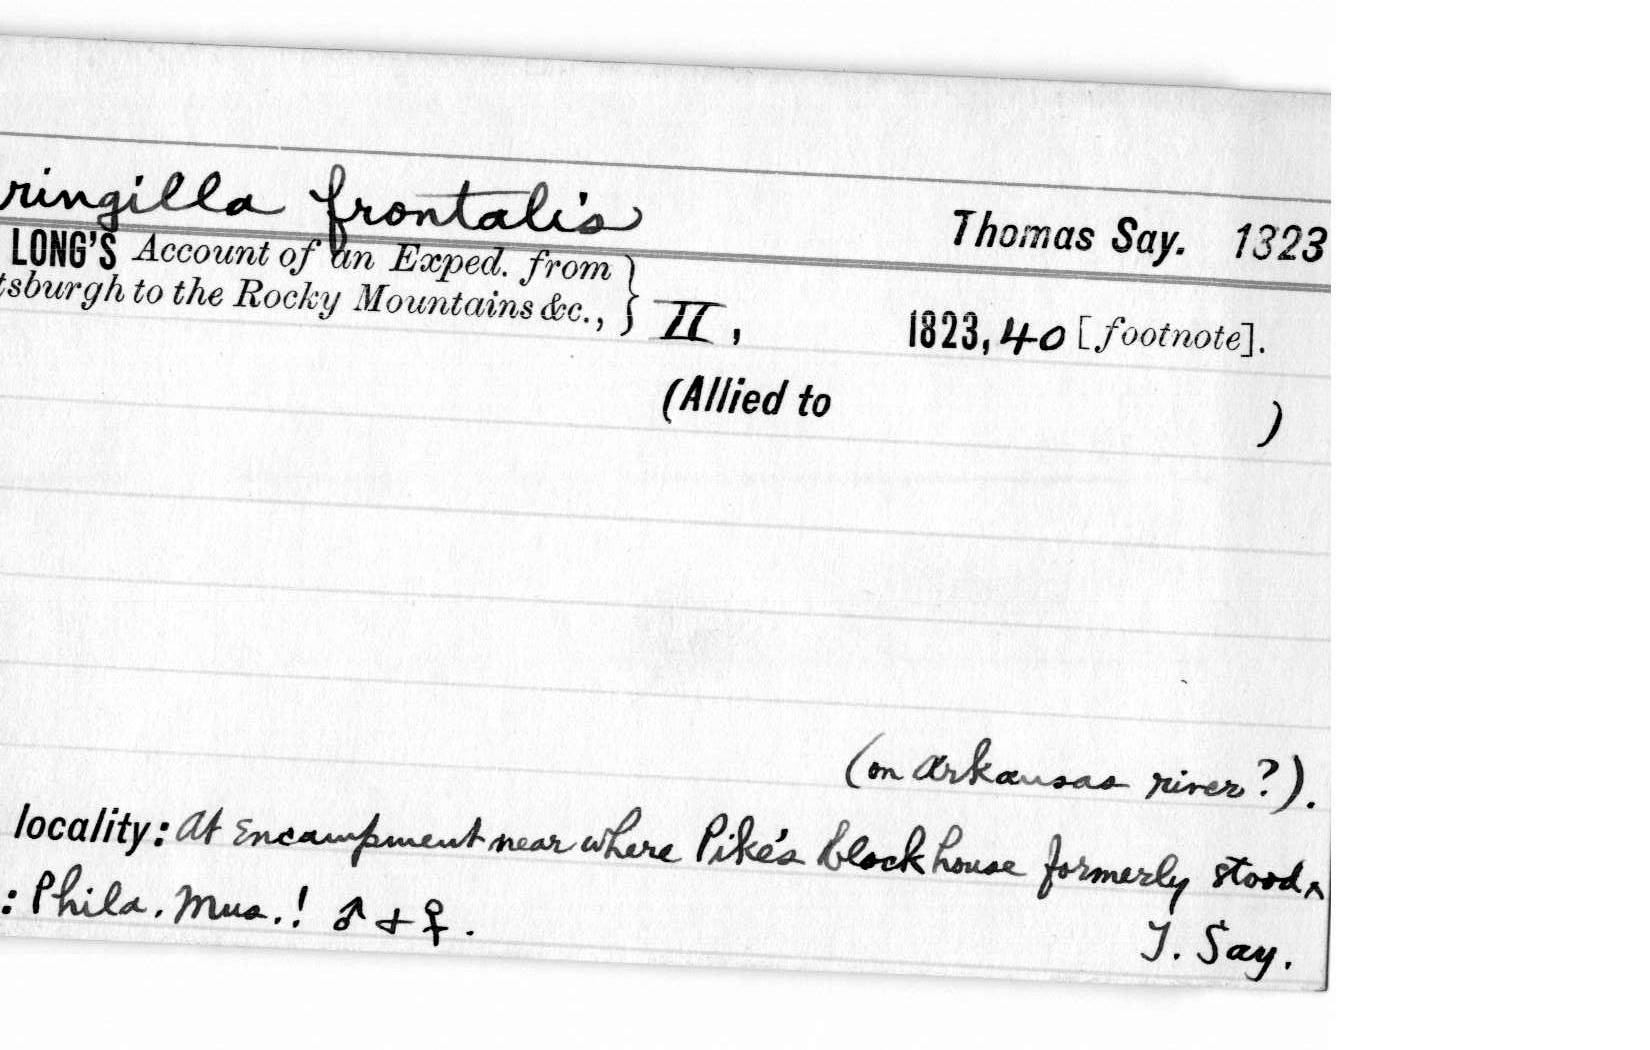 ringilla frontalis Thomas Say. 1323
LONG'S Account of an Exped. from
tsburgh to the Rocky Mountains &c., } II, 1823, 40 [footnote].
(Allied to )
(on Arkansas river?).
locality: At Encampment near where Pike's block house formerly stood ^
: Phila. Mus.! ♂ + ♀.
T. Say.